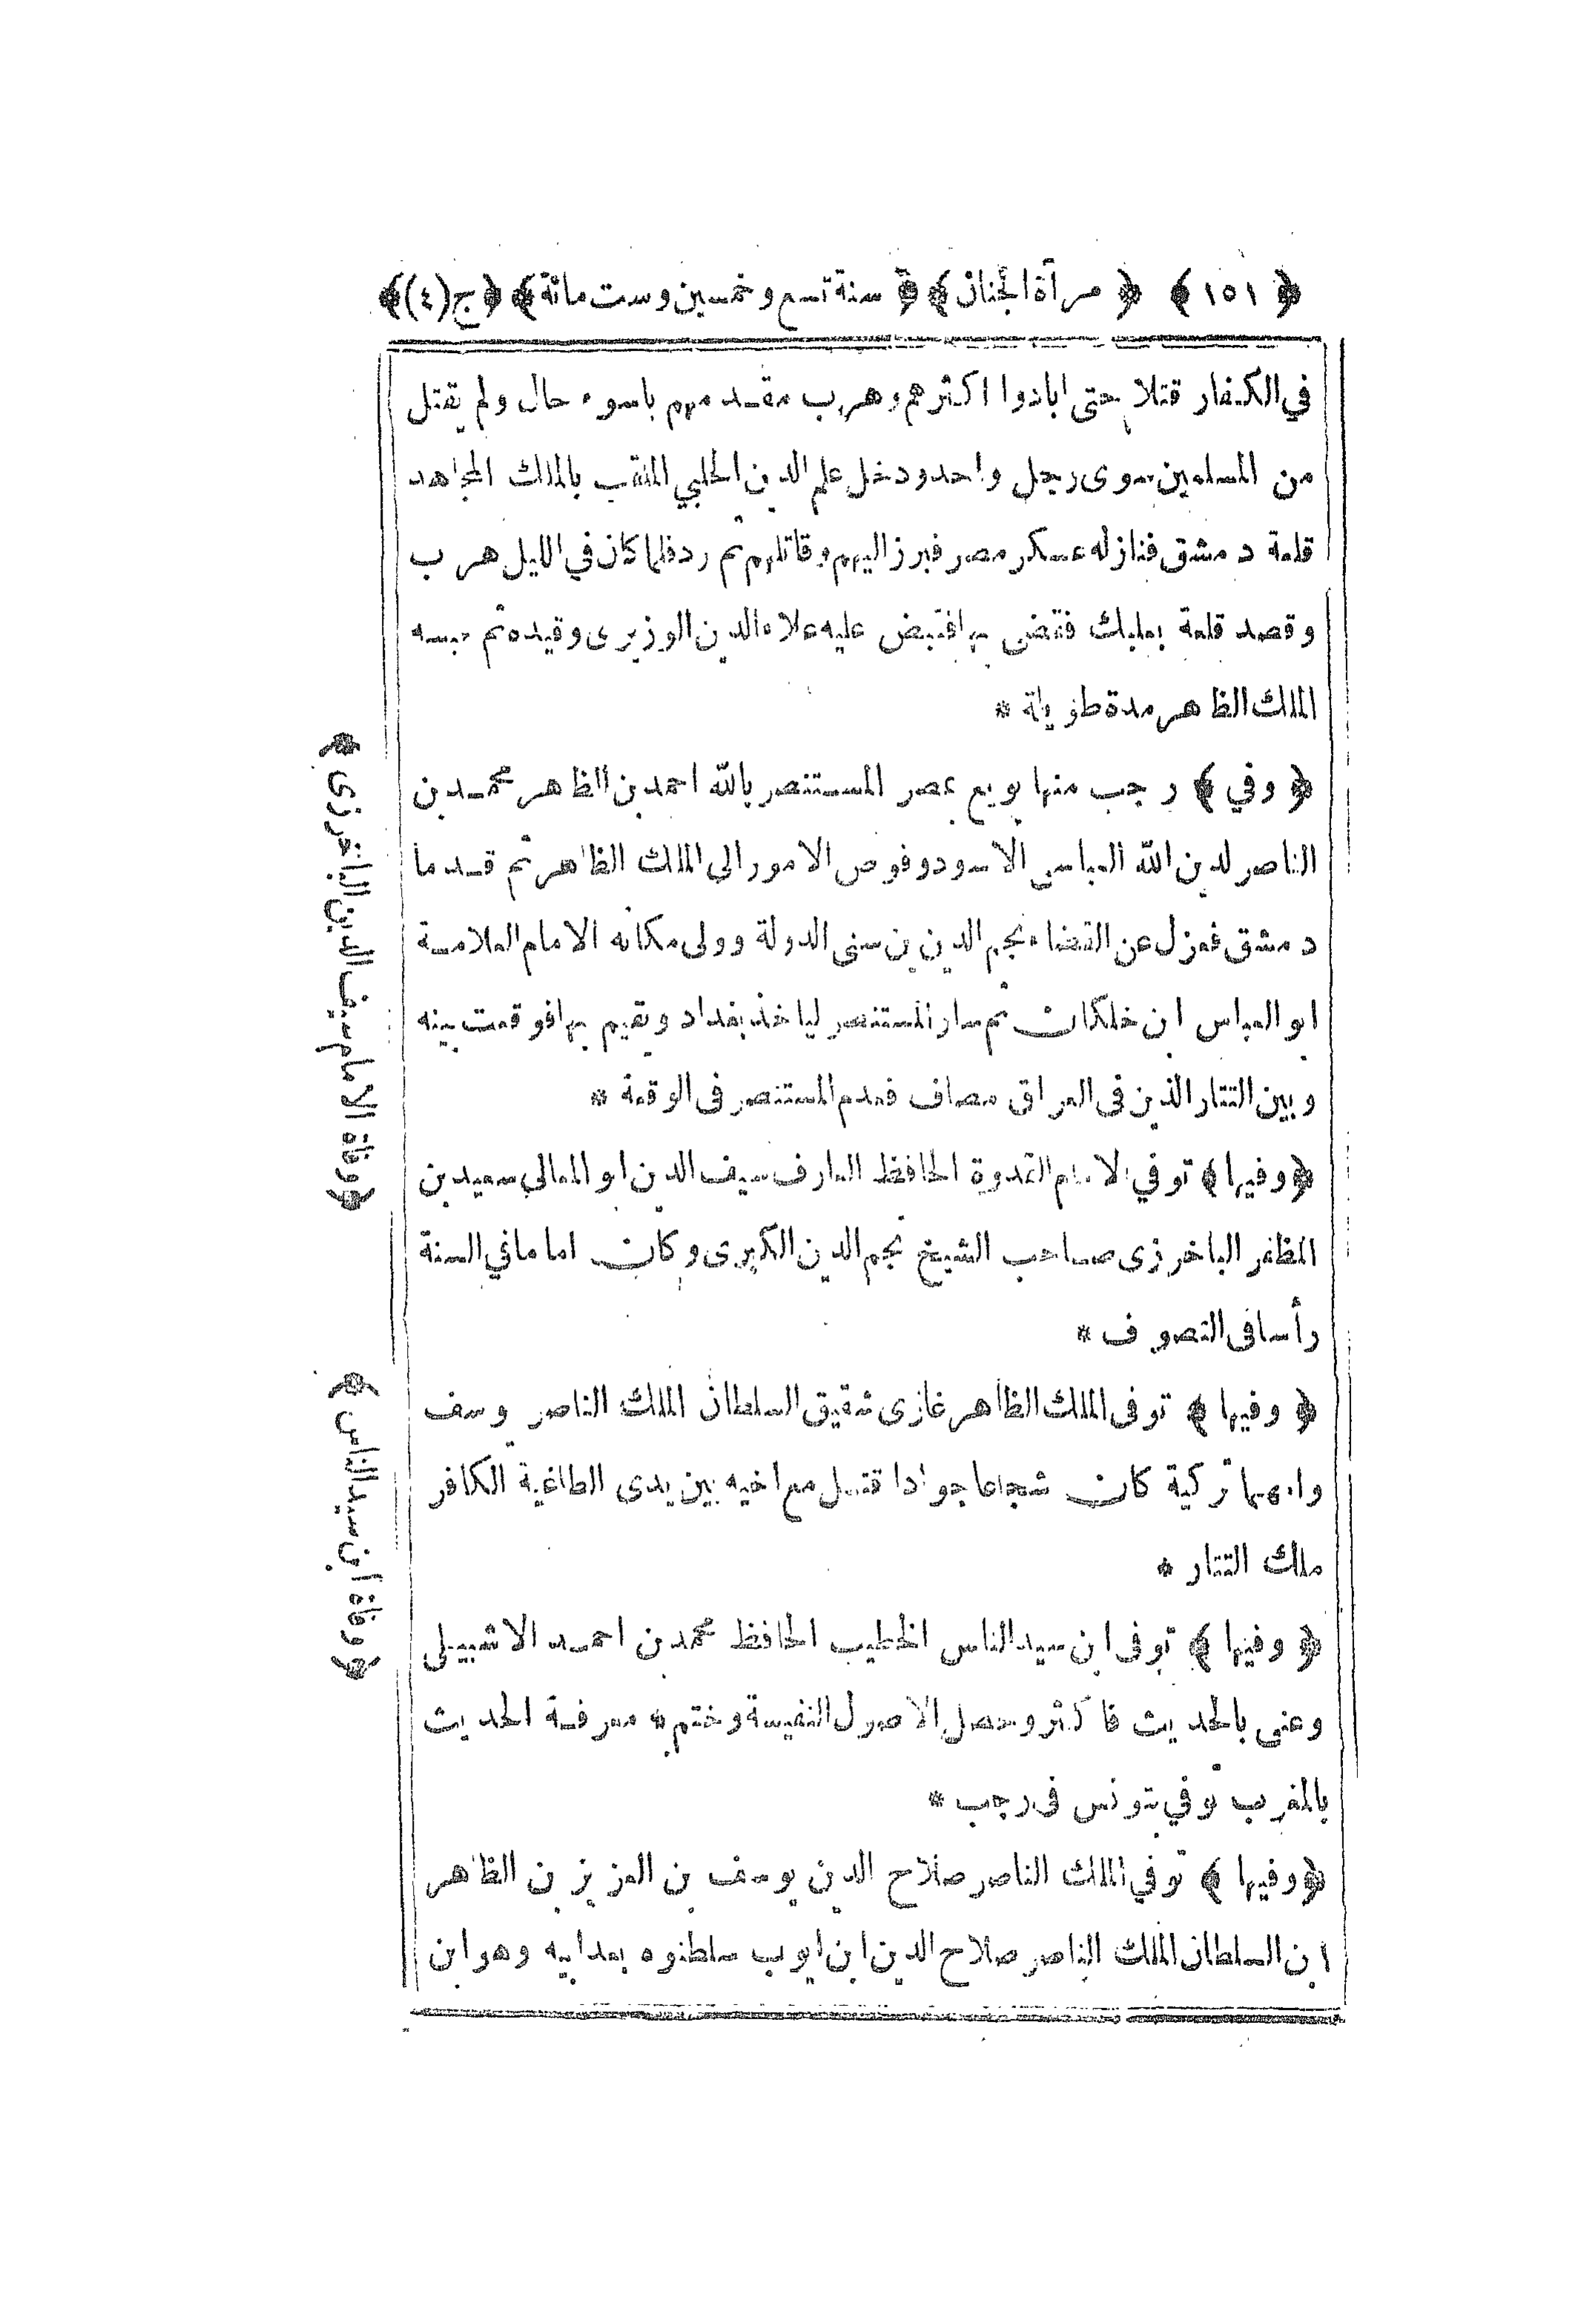 ﴿ ١٥١ ﴾ ﴿ مرآة الجنان ﴾ ﴿ سنة تسع وخمسين وست مائة ﴾ ﴿ ج (٤) ﴾
في الكفار قتلا حتى ابادوا اكثرهم وهرب مقدمهم باسوء حال ولم يقتل
من المسلمين سوى رجل واحد ودخل علم الدين الحلبي الملقب بالملك المجاهد
قلعة دمشق فنازله عسكر مصر فبرز اليهم وقاتلهم ثم رد فلما كان في الليل هرب
وقصد قلعة بعلبك فقضى بها فقبض عليه علاء الدين الوزيرى وقيده ثم حبسه
الملك الظاهر مدة طويلة *
﴿ وفي ﴾ رجب منها بويع بمصر المستنصر بالله احمد بن الظاهر محمد بن
الناصر لدين الله العباسي الاسود وفوض الامور الى الملك الظاهر ثم قدما
دمشق فعزل عن القضاء نجم الدين بن سنى الدولة وولى مكانه الامام العلامة
ابو العباس ابن خلكان ثم سار المستنصر لياخذ بغداد ويقيم بها فوقعت بينه
وبين التتار الذين فى العراق مصاف فعدم المستنصر فى الوقعة *
﴿ وفيها ﴾ توفي الامام القدوة الحافظ العارف سيف الدين ابو المعالي سعيد بن
المظفر الباخرزى صاحب الشيخ نجم الدين الكبرى وكان اماما في السنة
رأسا فى التصوف *
﴿ وفيها ﴾ توفى الملك الظاهر غازى شقيق السلطان الملك الناصر يوسف
وامهما تركية كان شجاعا جوادا قتل مع اخيه بين يدى الطاغية الكافر
ملك التتار *
﴿ وفيها ﴾ توفى ابن سيد الناس الخطيب الحافظ محمد بن احمد الاشبيلى
وعنى بالحديث فاكثر وحصل الاصول النفيسة وختم به معرفة الحديث
بالمغرب توفي بتونس فى رجب *
﴿ وفيها ﴾ توفي الملك الناصر صلاح الدين يوسف بن العزيز بن الظاهر
ابن السلطان الملك الناصر صلاح الدين ابن ايوب سلطنوه بعد ابيه وهو ابن
﴿ وفاة الامام سيف الدين الباخرزى ﴾
﴿ وفاة ابن سيد الناس ﴾